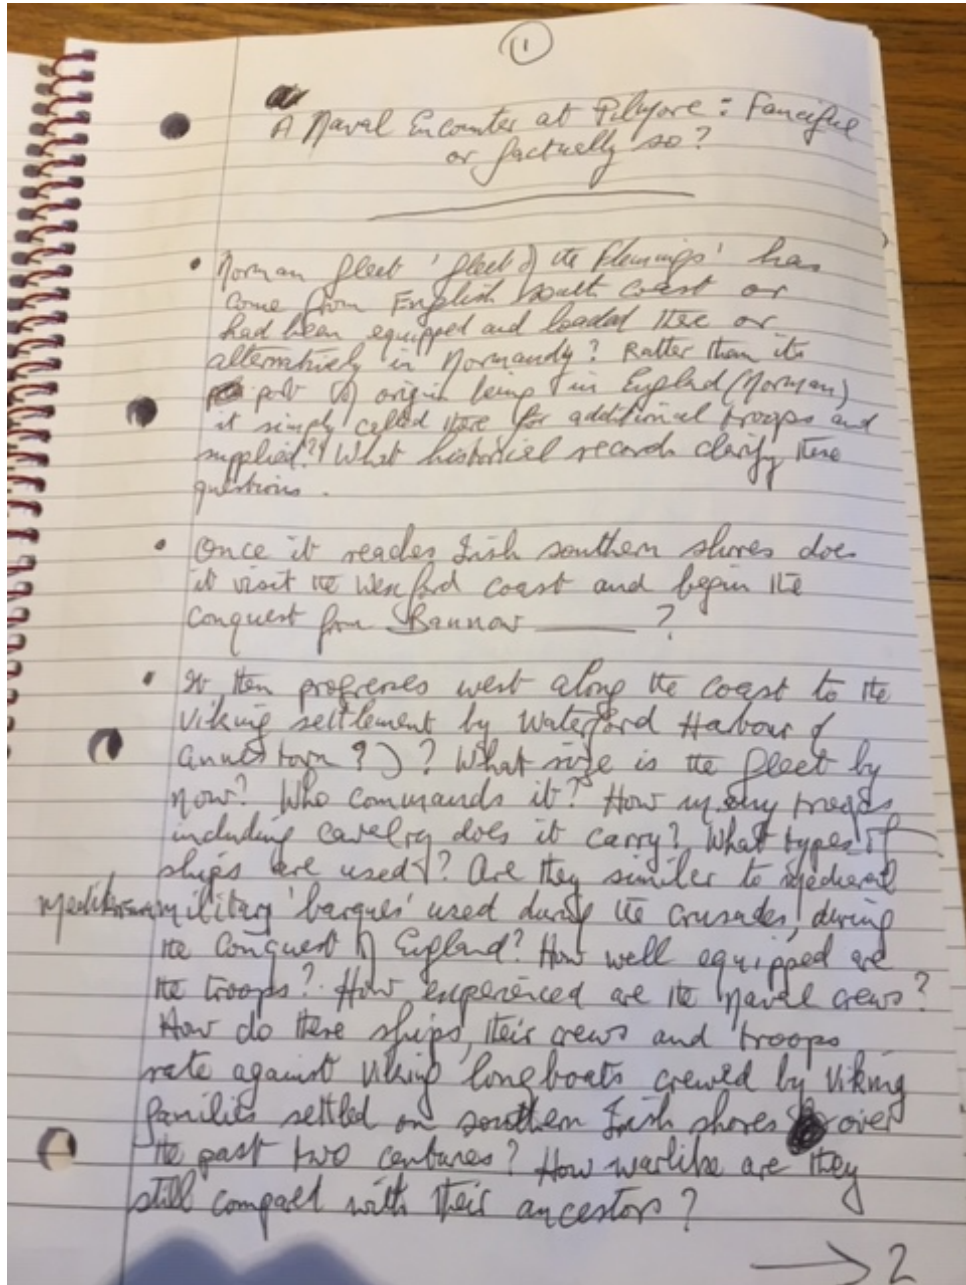 1
A Naval Encounter at Pilmore : Fanciful
or factually so?
• Norman fleet 'fleet of the Flemings' has
come from English south coast or
had been equipped and loaded there or
alternatively in Normandy? Rather than its
port of origin being in England (Norman)
it simply called there for additional troops and
supplied?! What historical records clarify these
questions.
• Once it reaches Irish southern shores does
it visit the Wexford coast and begin the
Conquest from Bannow ?
• It then progresses west along the coast to the
Viking settlement by Waterford Harbour
Annestown ?) ? What size is the fleet by
now? Who commands it? How many troops
including cavalry does it carry? What types of
ships are used? Are they similar to medieval
Mediterranean military 'barques' used during the Crusades, during
the Conquest of England? How well equipped are
the troops? How experienced are the naval crews?
How do these ships, their crews and troops
rate against Viking longboats crewed by Viking
families settled on southern Irish shores over
the past two centuries? How warlike are they
still compared with their ancestors?
→ 2